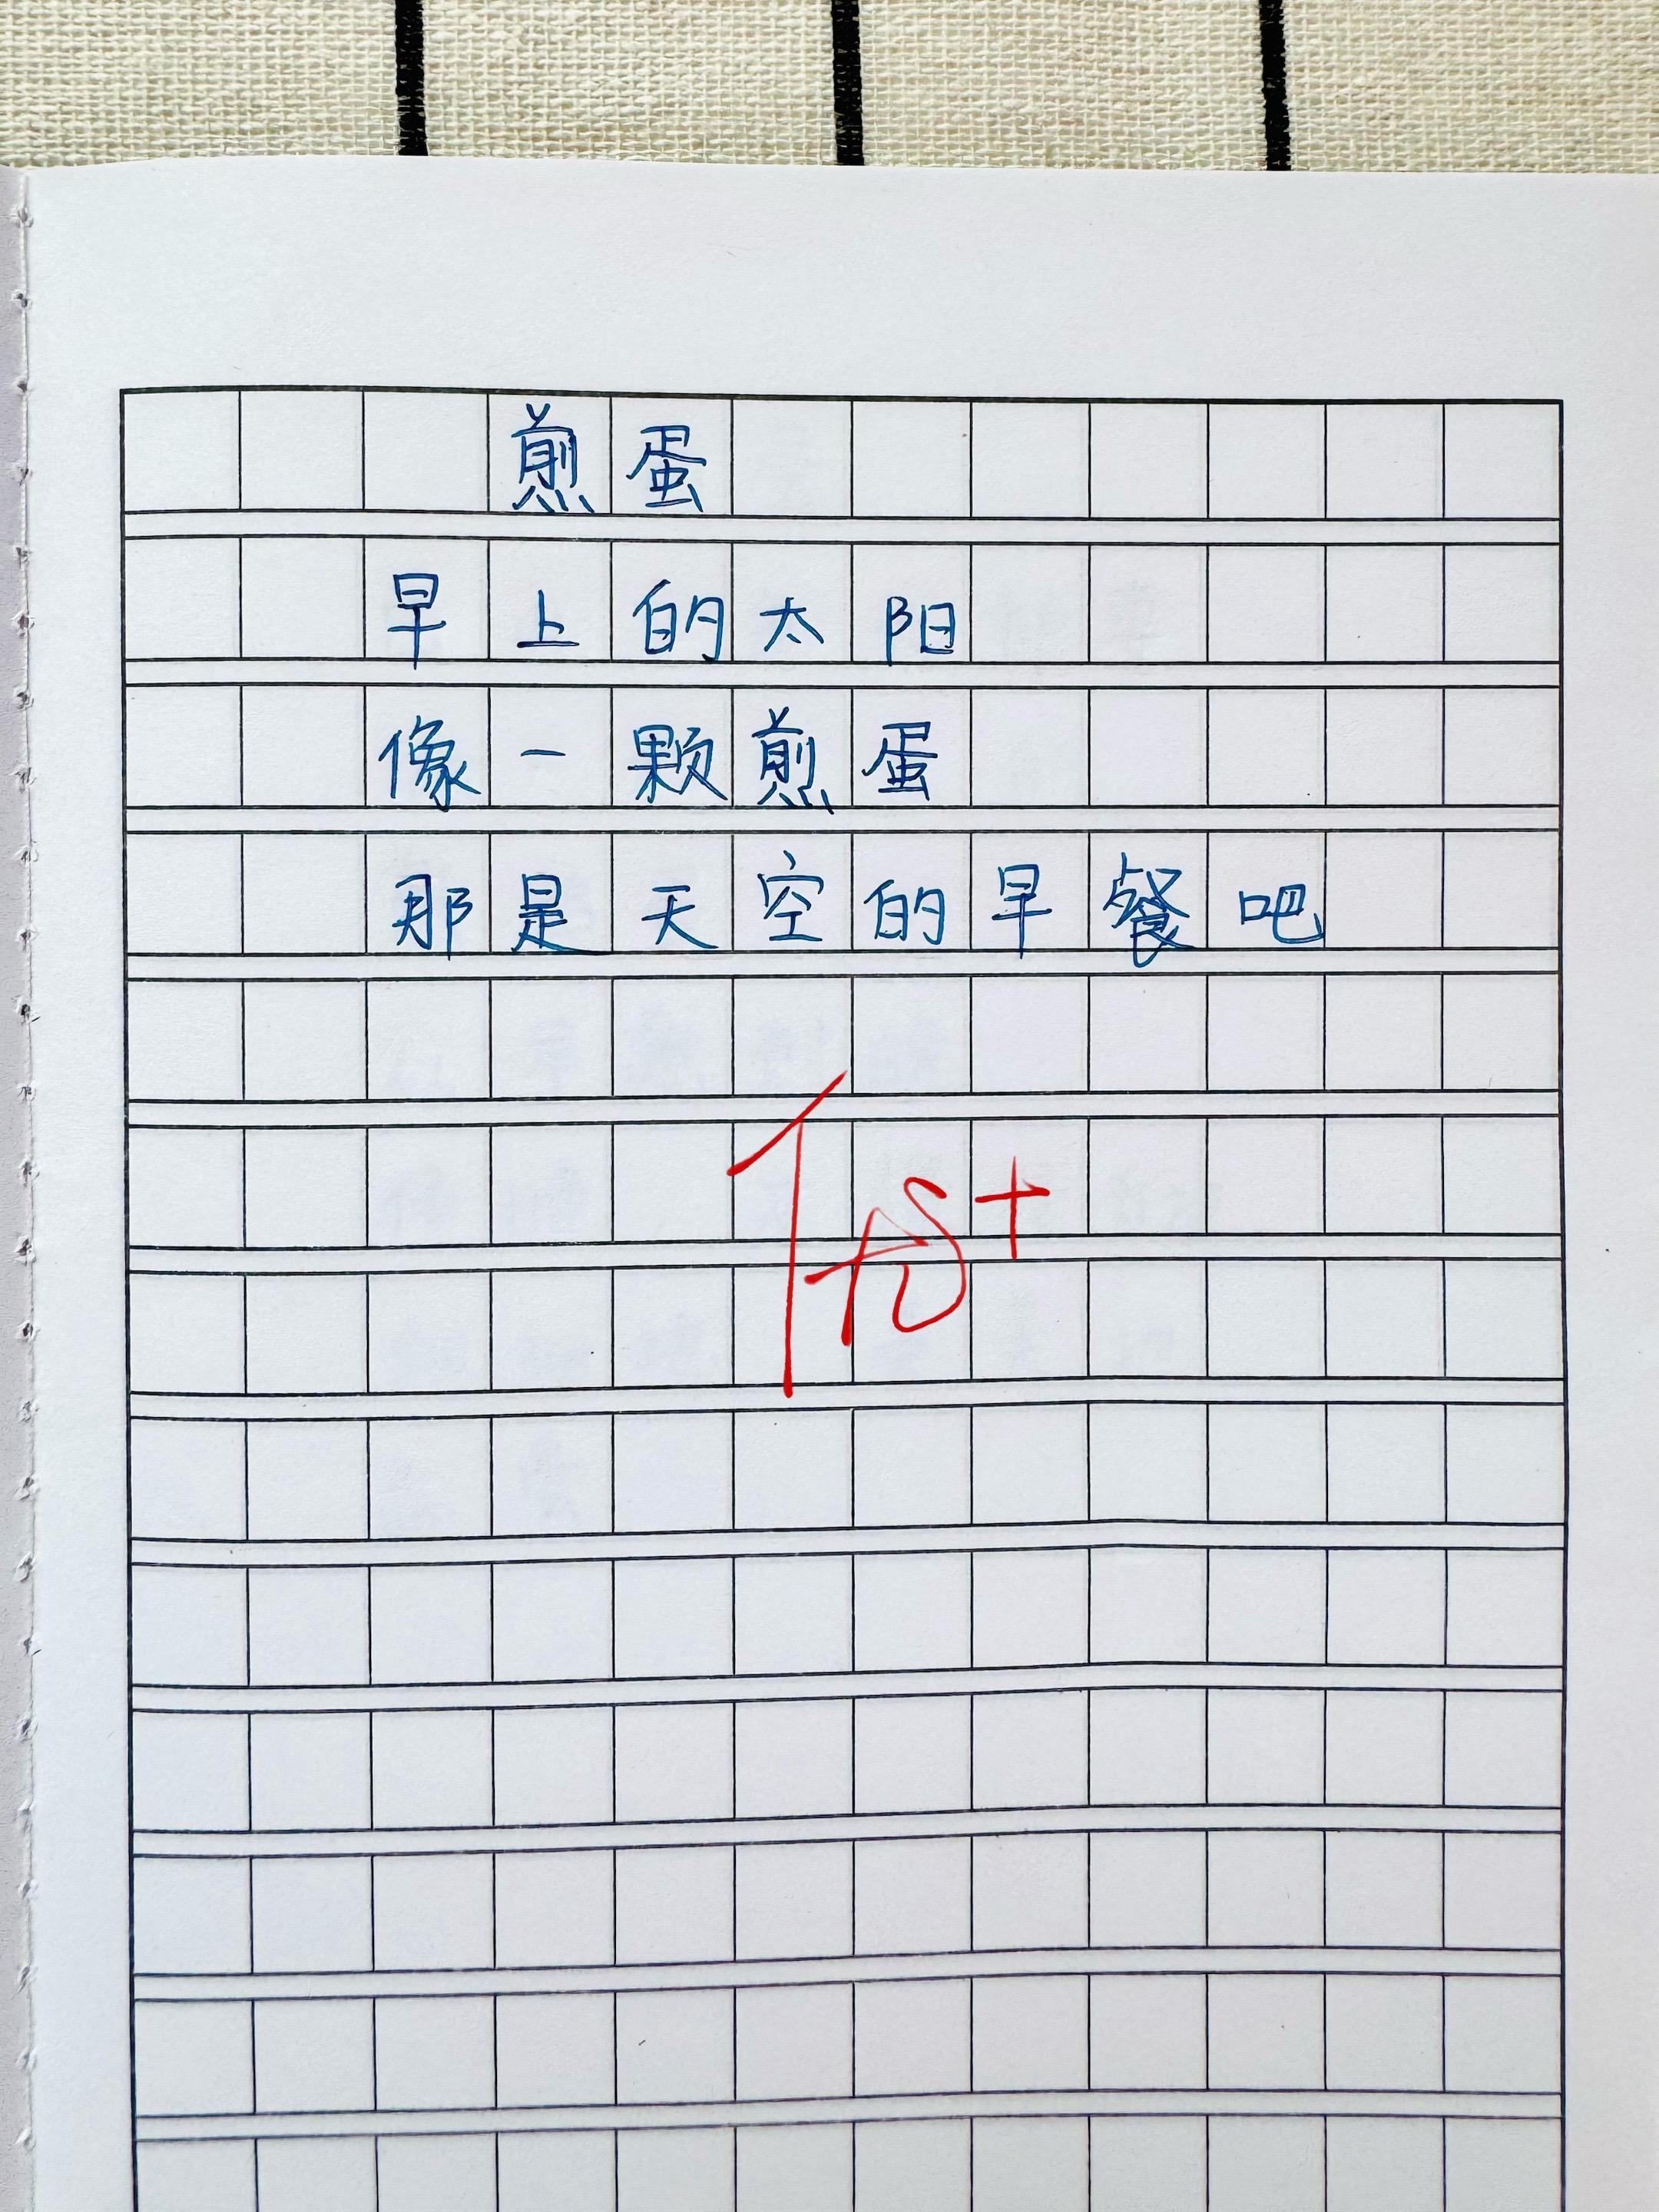 煎蛋
早上的太阳
像一颗煎蛋
那是天空的早餐吧
优+